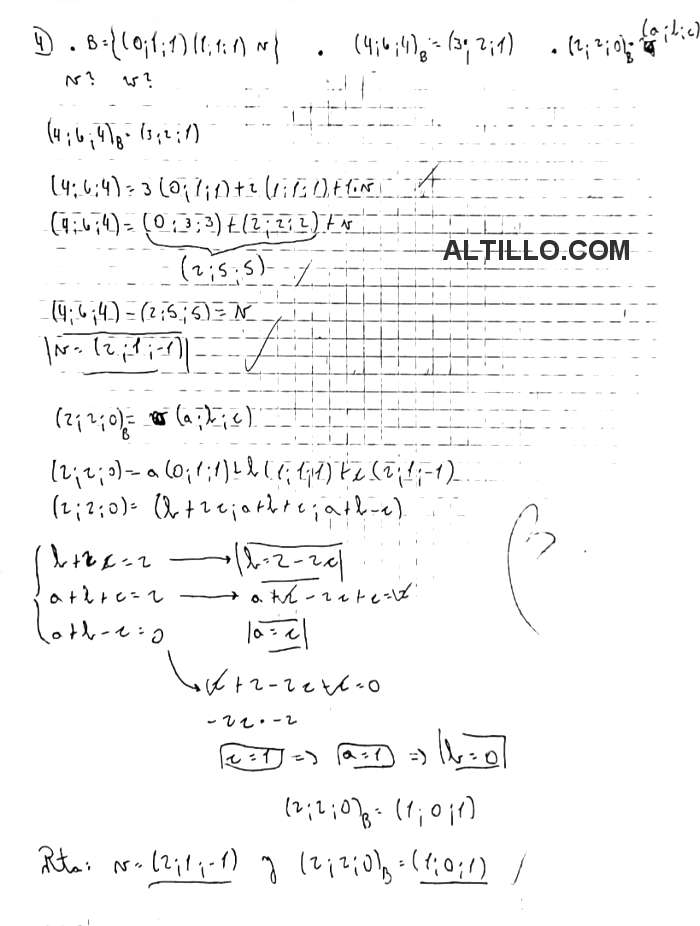 4) . B={(0;1;1)(1;1;1) v} . (4;6;4)B=(3;2;1) . (2;2;0)B=(a;b;c)
v? w?
(4;6;4)B=(3;2;1)
(4;6;4)=3(0;1;1)+2(1;1;1)+1.v
(4;6;4)=(0;3;3)+(2;2;2)+v
ALTILLO.COM
(2;5;5)
(4;6;4)-(2;5;5)=v
v=(2;1;-1)
(2;2;0)B= (a;b;c)
(2;2;0)=a(0;1;1)+b(1;1;1)+c(2;1;-1)
(2;2;0)=(b+2c;a+b+c;a+b-c)
b+2c=2 → b=2-2c
a+b+c=2 → a+2-2c+c=2
a+b-c=0 a=c
c+2-2c-c=0
-2c=-2
c=1 => a=1 => b=0
(2;2;0)B=(1;0;1)
Rta: v=(2;1;-1) y (2;2;0)B=(1;0;1)